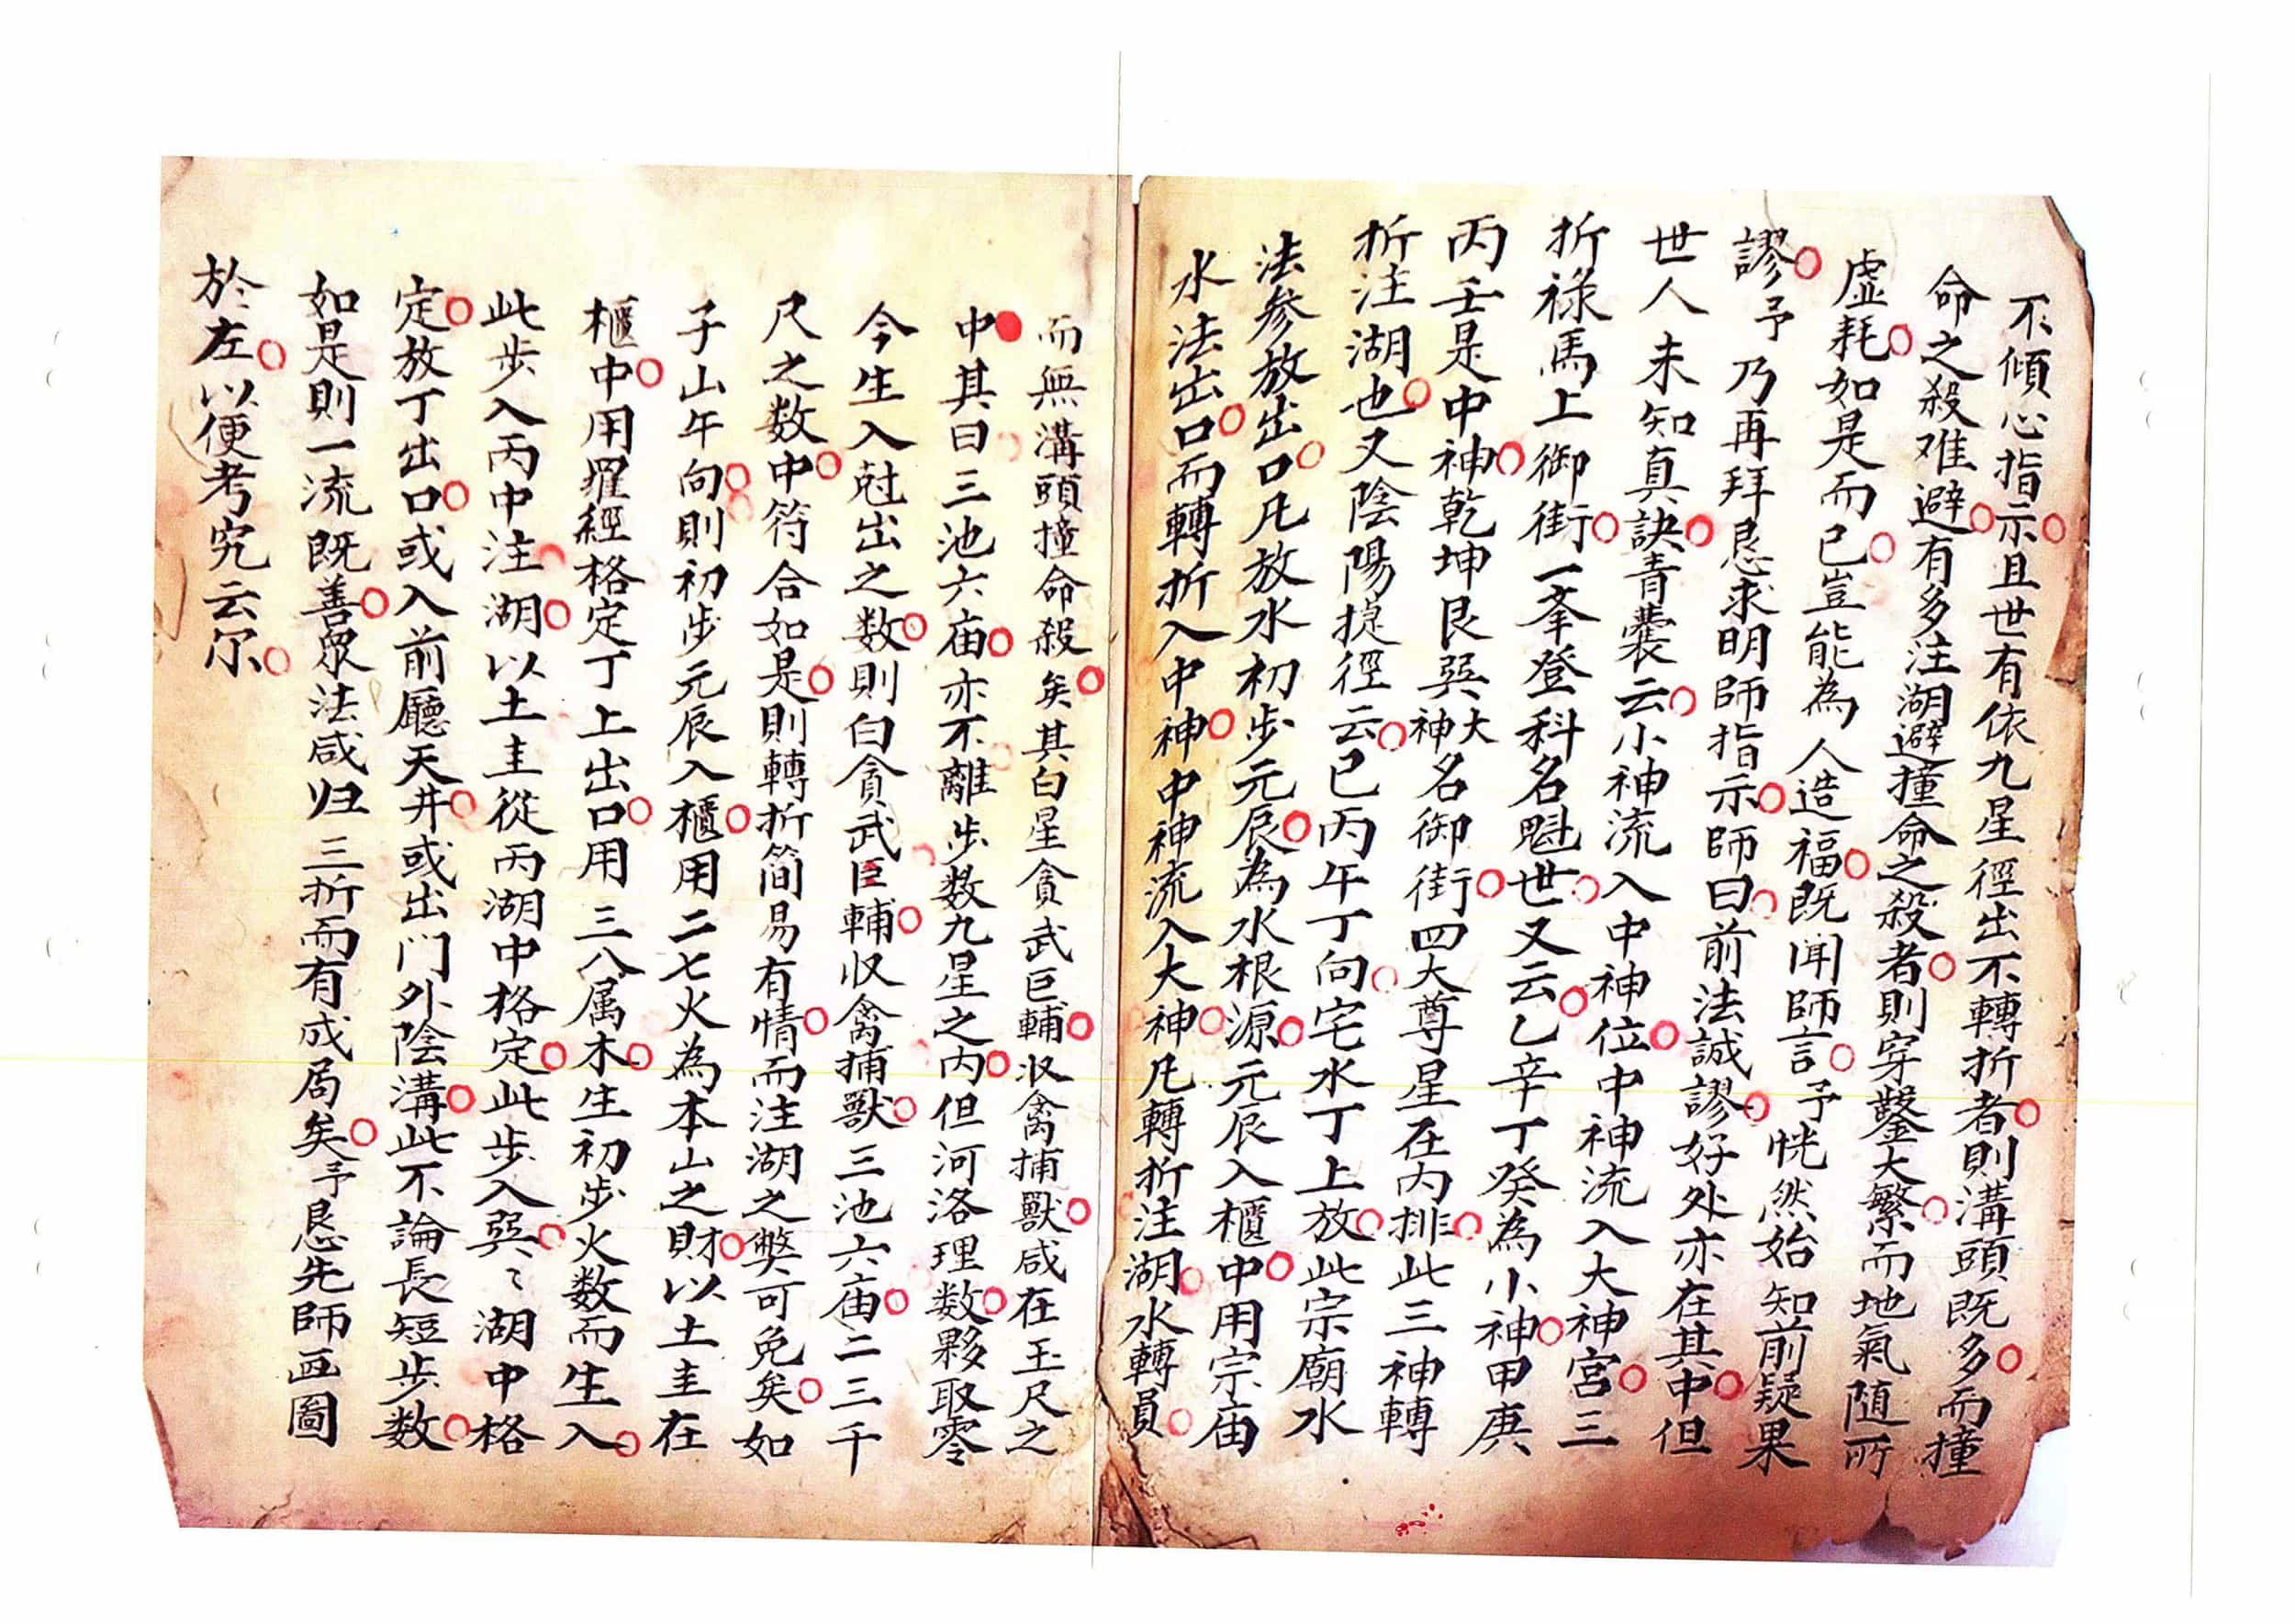 不傾心指示且世有依九星徑出不轉折者則溝頭既多而撞
命之殺难避有多注湖避撞命之殺者則穿鑿大繁而地氣随所
虛耗如是而已豈能為人造福既闻師言予恍然始知前疑果
謬予乃再拜恳求明師指示師曰前法誠謬好处亦在其中但
世人未知真訣青囊云小神流入中神位中神流入大神宮三
折祿馬上御街一峯登科名魁世又云乙辛丁癸為小神甲庚
丙壬是中神乾坤艮巽大神名御街四大尊星在内排此三神轉
折注湖也又陰陽捷徑云巳丙午丁向宅水丁上放此宗廟水
法参放出口凡放水初步元辰為水根源元辰入櫃中用宗庙
水法出口而轉折入中神中神流入大神凡轉折注湖水轉員
而無溝頭撞命殺矣其白星貪武巨輔収禽捕獸咸在玉尺之
中其曰三池六庙亦不離步数九星之内但河洛理数夥取零
今生入尅出之数則白貪武巨輔収禽捕獸三池六庙二三千
尺之数中符合如是則轉折简易有情而注湖之弊可免矣如
子山午向則初步元辰入櫃用二七火為本山之財以土主在
櫃中用羅經格定丁上出口用三八属木生初步火数而生入
此步入丙中注湖以土主從丙湖中格定此步入巽〻湖中格
定放丁出口或入前廳天井或出门外陰溝此不論長短步数
如是則一流既善眾法咸归三折而有成局矣予恳先師画圖
於左以便考究云尔